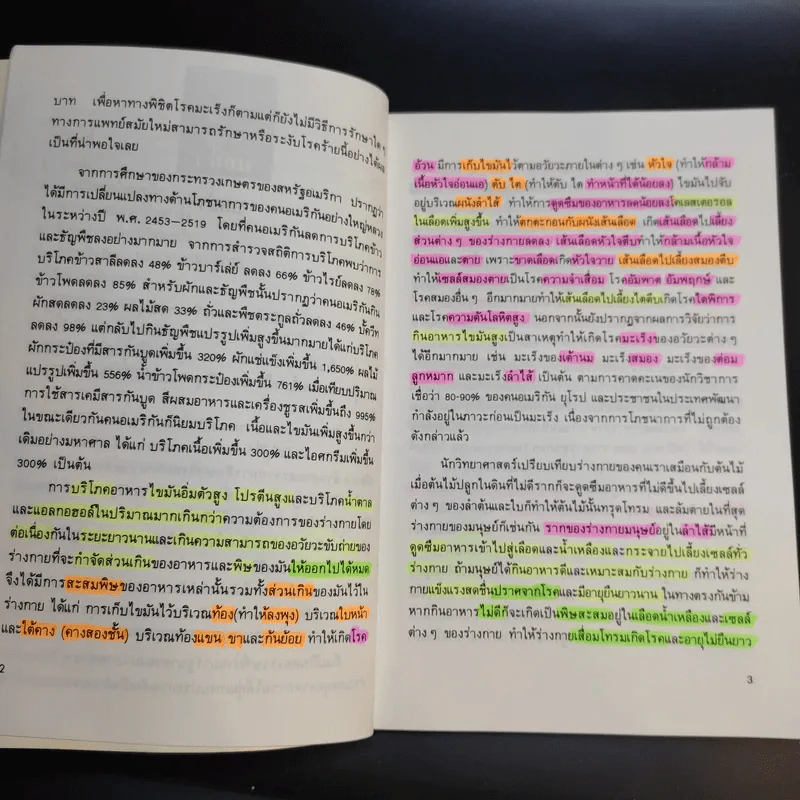 บาท เพื่อหาทางพิชิตโรคมะเร็งก็ตามแต่ก็ยังไม่มีวิธีการรักษาใด ๆ
ทางการแพทย์สมัยใหม่สามารถรักษาหรือระงับโรคร้ายนี้อย่างได้ผล
เป็นที่น่าพอใจเลย
จากการศึกษาของกระทรวงเกษตรของสหรัฐอเมริกา ปรากฏว่า
ได้มีการเปลี่ยนแปลงทางด้านโภชนาการของคนอเมริกันอย่างใหญ่หลวง
ในระหว่างปี พ.ศ. 2453—2519 โดยที่คนอเมริกันลดการบริโภคข้าว
และธัญพืชลงอย่างมากมาย จากการสำรวจสถิติการบริโภคพบว่าการ
บริโภคข้าวสาลีลดลง 48% ข้าวบาร์เลย์ ลดลง 66% ข้าวไรย์ลดลง 78%
ข้าวโพดลดลง 85% สำหรับผักและธัญพืชนั้นปรากฏว่าคนอเมริกันกิน
ผักสดลดลง 23% ผลไม้สด 33% ถั่วและพืชตระกูลถั่วลดลง 46% บั๊ควีท
ลดลง 98% แต่กลับไปกินธัญพืชแปรรูปเพิ่มสูงขึ้นมากมายได้แก่บริโภค
ผักกระป๋องที่มีสารกันบูดเพิ่มขึ้น 320% ผักแช่แข็งเพิ่มขึ้น 1,650% ผลไม้
แปรรูปเพิ่มขึ้น 556% น้ำข้าวโพดกระป๋องเพิ่มขึ้น 761% เมื่อเทียบปริมาณ
การใช้สารเคมีสารกันบูด สีผสมอาหารและเครื่องชูรสเพิ่มขึ้นถึง 995%
ในขณะเดียวกันคนอเมริกันก็นิยมบริโภค เนื้อและไขมันเพิ่มสูงขึ้นกว่า
เดิมอย่างมหาศาล ได้แก่ บริโภคเนื้อเพิ่มขึ้น 300% และไอศกรีมเพิ่มขึ้น
300% เป็นต้น
การบริโภคอาหารไขมันอิ่มตัวสูง โปรตีนสูงและบริโภคน้ำตาล
และแอลกอฮอล์ในปริมาณมากเกินกว่าความต้องการของร่างกายโดย
ต่อเนื่องกันในระยะยาวนานและเกินความสามารถของอวัยวะขับถ่ายของ
ร่างกายที่จะกำจัดส่วนเกินของอาหารและพิษของมันให้ออกไปได้หมด
จึงได้มีการสะสมพิษของอาหารเหล่านั้นรวมทั้งส่วนเกินของมันไว้ใน
ร่างกาย ได้แก่ การเก็บไขมันไว้บริเวณท้อง(ทำให้ลงพุง) บริเวณใบหน้า
และใต้คาง (คางสองชั้น) บริเวณท้องแขน ขาและก้นย้อย ทำให้เกิดโรค
2
อ้วน มีการเก็บไขมันไว้ตามอวัยวะภายในต่าง ๆ เช่น หัวใจ (ทำให้กล้าม
เนื้อหัวใจอ่อนแอ) ตับ ไต (ทำให้ตับ ไต ทำหน้าที่ได้น้อยลง) ไขมันไปจับ
อยู่บริเวณผนังลำไส้ ทำให้การดูดซึมของอาหารลดน้อยลงโคเลสเตอรอล
ในเลือดเพิ่มสูงขึ้น ทำให้ตกตะกอนกับผนังเส้นเลือด เกิดเส้นเลือดไปเลี้ยง
ส่วนต่าง ๆ ของร่างกายลดลง เส้นเลือดหัวใจตีบทำให้กล้ามเนื้อหัวใจ
อ่อนแอและตาย เพราะขาดเลือดเกิดหัวใจวาย เส้นเลือดไปเลี้ยงสมองตีบ
ทำให้เซลล์สมองตายเป็นโรคความจำเสื่อม โรคอัมพาต อัมพฤกษ์ และ
โรคสมองอื่น ๆ อีกมากมายทำให้เส้นเลือดไปเลี้ยงไตตีบเกิดโรคไตพิการ
และโรคความดันโลหิตสูง นอกจากนั้นยังปรากฏจากผลการวิจัยว่าการ
กินอาหารไขมันสูงเป็นสาเหตุทำให้เกิดโรคมะเร็งของอวัยวะต่าง ๆ
ได้อีกมากมาย เช่น มะเร็งของเต้านม มะเร็งสมอง มะเร็งของต่อม
ลูกหมาก และมะเร็งลำไส้ เป็นต้น ตามการคาดคะเนของนักวิชาการ
เชื่อว่า 80-90% ของคนอเมริกัน ยุโรป และประชาชนในประเทศพัฒนา
กำลังอยู่ในภาวะก่อนเป็นมะเร็ง เนื่องจากการโภชนาการที่ไม่ถูกต้อง
ดังกล่าวแล้ว
นักวิทยาศาสตร์เปรียบเทียบร่างกายของคนเราเสมือนกับต้นไม้
เมื่อต้นไม้ปลูกในดินที่ไม่ดีรากก็จะดูดซึมอาหารที่ไม่ดีขึ้นไปเลี้ยงเซลล์
ต่าง ๆ ของลำต้นและใบก็ทำให้ต้นไม้นั้นทรุดโทรม และล้มตายในที่สุด
ร่างกายของมนุษย์ก็เช่นกัน รากของร่างกายมนุษย์อยู่ในลำไส้มีหน้าที่
ดูดซึมอาหารเข้าไปสู่เลือดและน้ำเหลืองและกระจายไปเลี้ยงเซลล์ทั่ว
ร่างกาย ถ้ามนุษย์ได้กินอาหารดีและเหมาะสมกับร่างกาย ก็ทำให้ร่าง
กายแข็งแรงสดชื่นปราศจากโรคและมีอายุยืนยาว ในทางตรงกันข้าม
หากกินอาหารไม่ดีก็จะเกิดเป็นพิษสะสมอยู่ในเลือดน้ำเหลืองและเซลล์
ต่าง ๆ ของร่างกาย ทำให้ร่างกายเสื่อมโทรมเกิดโรคและอายุไม่ยืนยาว
3